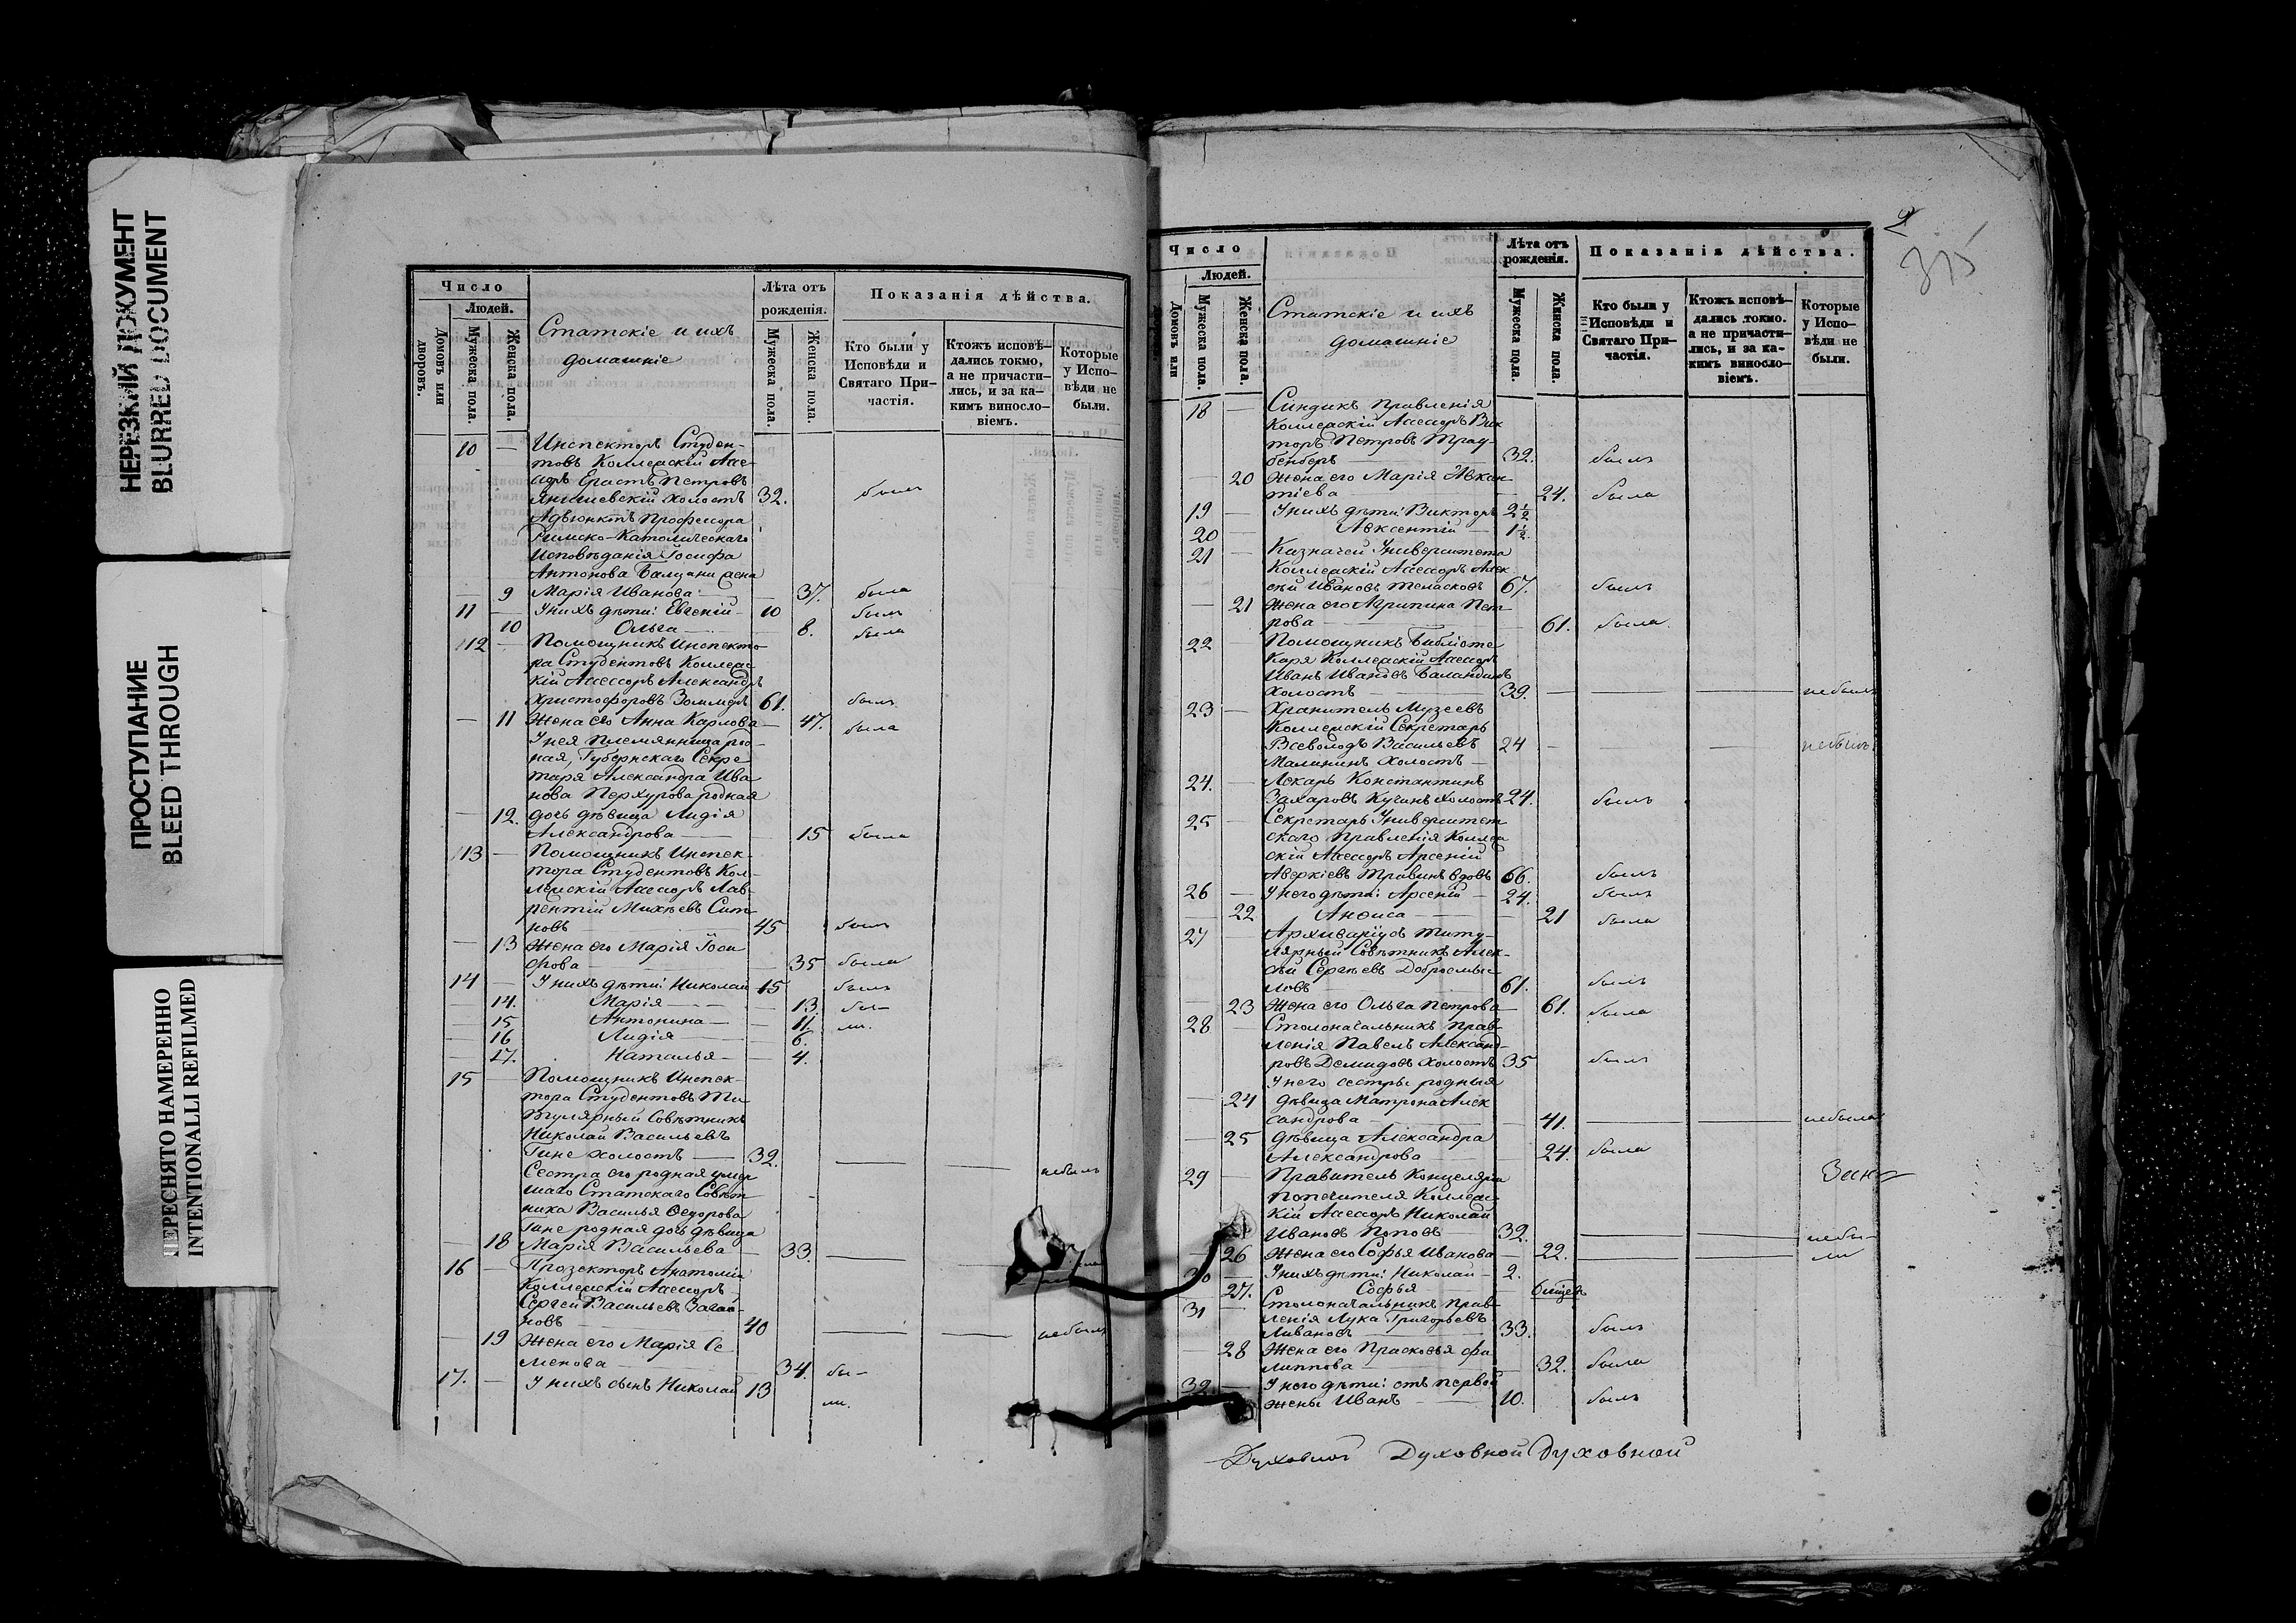 НЕРЕЗКИЙ ДОКУМЕНТ
BLURRED DOCUMENT
ПРОСТУПАНИЕ
BLEED THROUGH
ПЕРЕСНЯТО НАМЕРЕННО
INTENTIONALLI REFILMED
Число
Людей.
Домовъ или дворовъ.
Мужеска пола.
Женска пола.
Статскіе и ихъ
домашніе
Лѣта отъ
рожденія.
Мужеска пола.
Женска пола.
Показанія дѣйства.
Кто были у
Исповѣди и
Святаго При-
частія.
Ктожъ исповѣ-
дались токмо,
а не причасти-
лись, и за ка-
кимъ винosло-
віемъ.
Которые
у Испо-
вѣди не
были.
10 — Инспекторъ Студен-
товъ Коллежскій Ассе-
соръ Ерастъ Петровъ
Янишевскій холостъ 32. былъ
Адъюнктъ Профессора
Римско-Католическаго
Исповѣданія Іосифа
Антонова жена
— 9 Марія Иванова — 37. была
11 — У нихъ дѣти: Евгеній — 10 былъ
10 Ольга — 8. была
12 — Помощникъ Инспекто-
ра Студентовъ Коллеж-
кій Ассесоръ Александръ
Христофоровъ Зоммеръ 61. былъ
— 11 Жена его Анна Карлова — 47. была
У нея племянница род-
ная, Губернскаго Секре-
таря Александра Ива-
нова Перхурова родная
— 12. дочь дѣвица Лидія
Александрова — 15 была
13 — Помощникъ Инспек-
тора Студентовъ Кол-
лежскій Ассесоръ Лав-
рентій Михѣевъ Сит-
ковъ 45 былъ
— 13 Жена его Марія Іоси-
фова — 35 была
14 — У нихъ дѣти: Николай 15 былъ
— 14. Марія — 13. бы-
— 15 Антонина — 11. ли.
— 16 Лидія — 6.
— 17. Наталья — 4.
15 — Помощникъ Инспек-
тора Студентовъ Ти-
тулярный Совѣтникъ
Николай Васильевъ
Гине холостъ — 32. — — небылъ
Сестра его родная умер-
шаго Статскаго Совѣт-
ника Василья Ѳедорова
Гине родная дочь дѣвица
— 18 Марія Васильева — 33. —
16 — Прозекторъ Анатоміи
Коллежскій Ассесоръ
Сергей Васильевъ
40 — — небылъ
— 19 Жена его Марія Се-
менова — 34. бы-
17. — У нихъ сынъ Николай 13 ли.
375
Число
Людей.
Домовъ или
Мужеска пола.
Женска пола.
Статскіе и ихъ
домашніе
Лѣта отъ
рожденія.
Мужеска пола.
Женска пола.
Показанія дѣйства.
Кто были у
Исповѣди и
Святаго При-
частія.
Ктожъ исповѣ-
дались токмо.
а не причасти-
лись, и за ка-
кимъ винosло-
віемъ.
Которые
у Испо-
вѣди не
были.
18 — Синдикъ Правленія
Коллежскій Ассесоръ Вик-
торъ Петровъ Трау-
бенбергъ 32. былъ
— 20 Жена его Марія Авксен-
тіева — 24. была
19 — У нихъ дѣти: Викторъ 2½
20 — Авксентій — 1½
21 — Казначей Университета
Коллежскій Ассесоръ Алек-
сѣй Ивановъ 67. былъ
— 21 Жена его Агрипина Пет-
рова — 61. была.
22 — Помощникъ Библіоте-
каря Коллежскій Ассесоръ
Иванъ Ивановъ Баландинъ
холостъ — 39. — — небылъ
23 — Хранитель Музеевъ
Коллежскій Секретарь
Всеволодъ Васильевъ 24 — — небылъ
Малининъ холостъ —
24. — Лекарь Константинъ
Захаровъ Кучинъ холостъ 24. былъ
25 — Секретарь Университет-
скаго Правленія Коллеж-
скій Ассесоръ Арсеній
Аверкіевъ Травинъ вдовъ 66. былъ
26 — У него дѣти: Арсеній — 24. былъ
— 22 Анѳиса — 21 была
27 — Архиваріусъ Титу-
лярный Совѣтникъ Алек-
сѣй Сергѣевъ Добросмыс-
ловъ 61. былъ
— 23 Жена его Ольга Петрова — 61. была
28 — Столоначальникъ Прав-
ленія Павелъ Александ-
ровъ Демидовъ холостъ 35 былъ
У него сестры родныя
— 24 дѣвица Матрона Алек-
сандрова — 41. — — небыла
— 25 дѣвица Александра
Александрова — 24. была
29 — Правитель Канцеляріи
Попечителя Коллеж-
кій Ассесоръ Николай
Ивановъ Поповъ 32. — — небы-
— 26 Жена его Софья Иванова — 22. — — ли
30 — У нихъ дѣти: Николай — 2.
27. Софья —
31 — Столоначальникъ Прав-
ленія Лука Григорьевъ
Ливановъ 33. былъ
— 28 Жена его Прасковья Фи-
липпова — 32. была
32 — У него дѣти: отъ первой
жены Иванъ — 10. былъ
Духовной Духовной Духовной